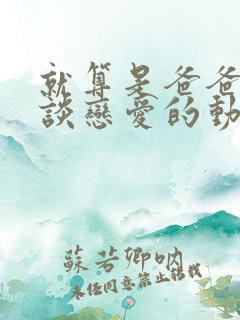 就算是爸爸
談戀愛的動
蘇若卿吶
未經同意禁止轉載